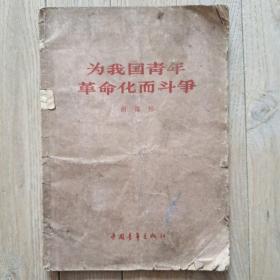 为我国青年
革命化而斗争
胡耀邦
中国青年出版社